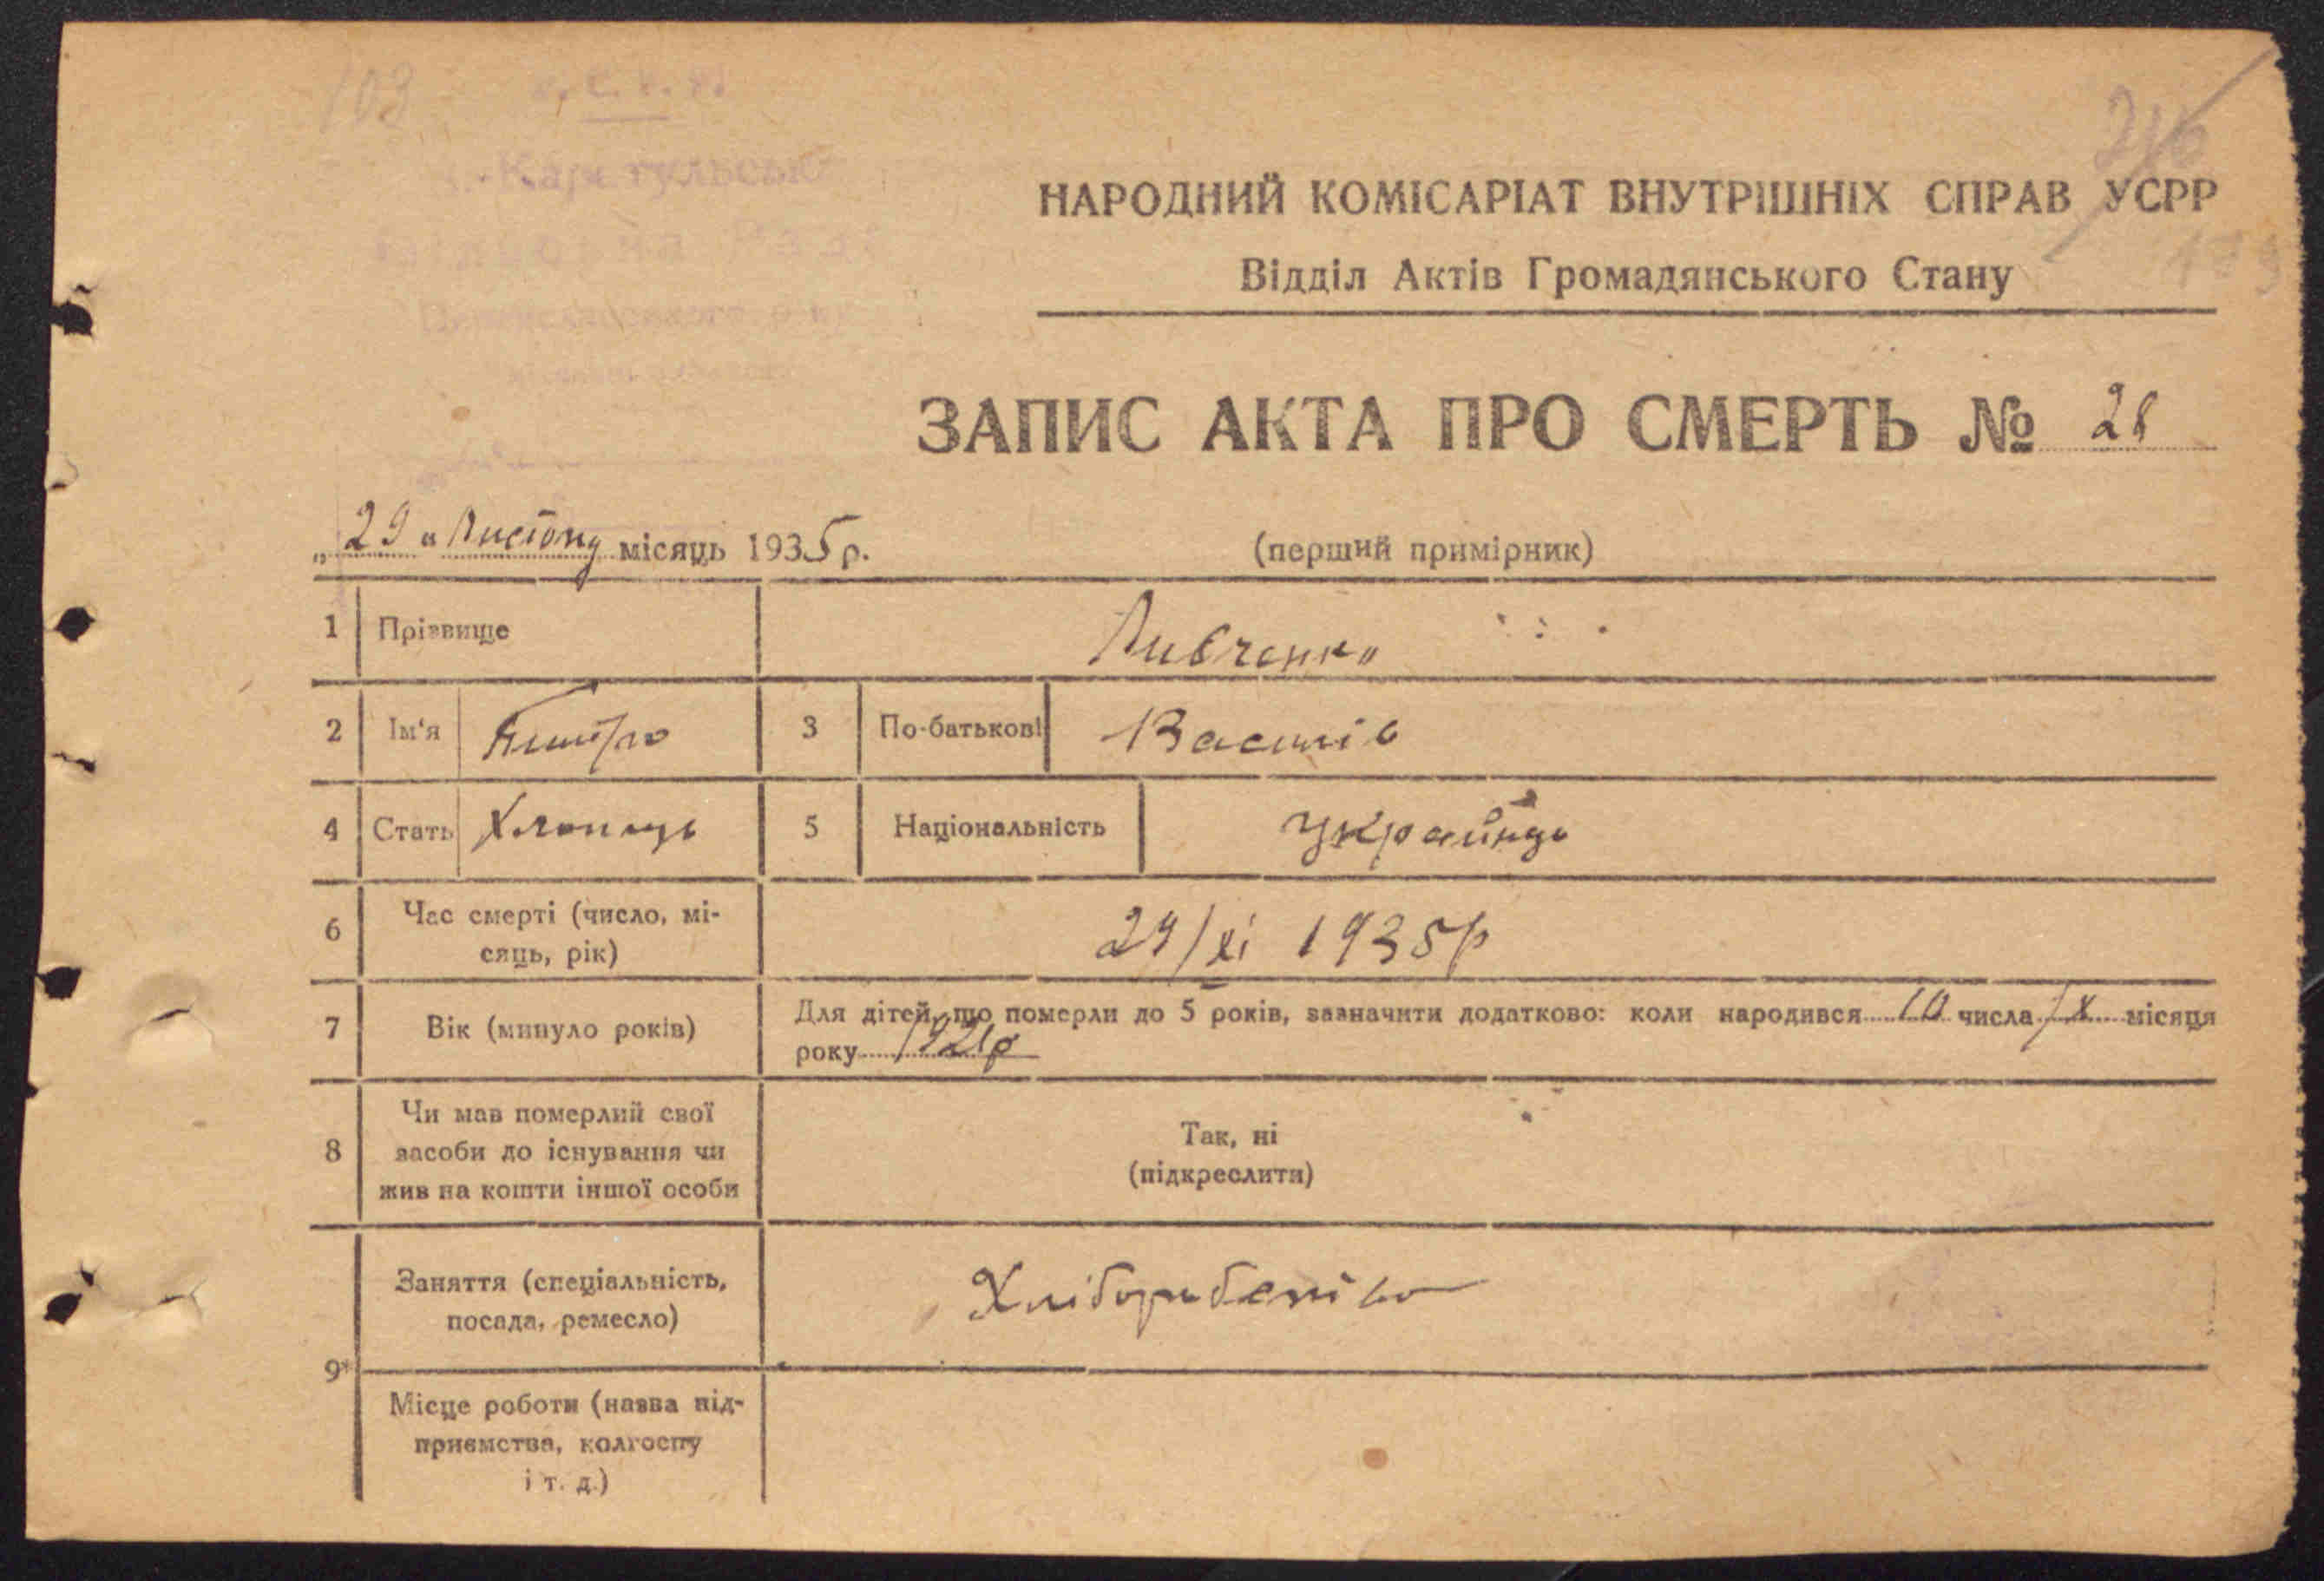 НАРОДНИЙ КОМІСАРІАТ ВНУТРІШНІХ СПРАВ УСРР
Відділ Актів Громадянського Стану
ЗАПИС АКТА ПРО СМЕРТЬ № 28
„29“ Листопд місяць 1935 р.
(перший примірник)
1 Прізвище Ливченко
2 Ім'я 3 По-батькові Василів
4 Стать Хлопець 5 Національність Українць
6 Час смерті (число, мі-
сяць, рік) 29/хі 1935р
7 Вік (минуло років) Для дітей, що померли до 5 років, зазначити додатково: коли народився 10 числа місяця
року 1921р
8 Чи мав померлий свої
засоби до існування чи
жив на кошти іншої особи
Так, ні
(підкреслити)
9* Заняття (спеціальність,
посада, ремесло)
Місце роботи (назва під-
приємства, колгоспу
і т. д.)